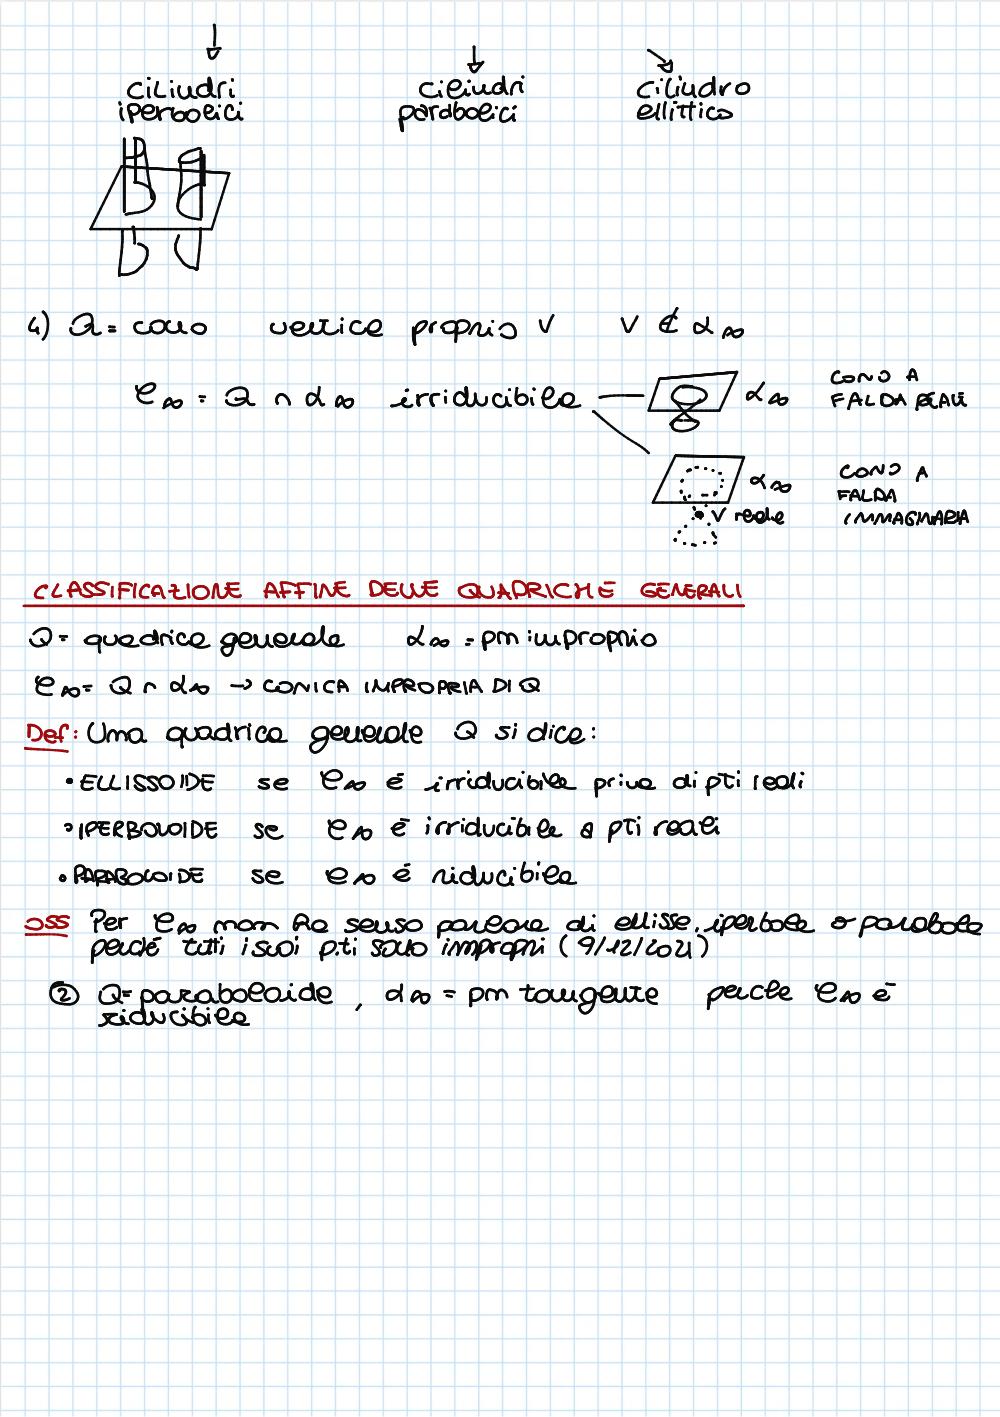 cilindri cilindri cilindro
iperbolici parabolici ellittico
4) Q = cono vertice proprio V V ∉ α∞
C∞ = Q ∩ α∞ irriducibile
α∞ CONO A
FALDA REALE
α∞ CONO A
FALDA
V reale IMMAGINARIA
CLASSIFICAZIONE AFFINE DELLE QUADRICHE GENERALI
Q = quadrica generale α∞ = pm improprio
C∞ = Q ∩ α∞ → CONICA IMPROPRIA DI Q
Def: Una quadrica generale Q si dice:
• ELLISSOIDE se C∞ è irriducibile priva di pti reali
• IPERBOLOIDE se C∞ è irriducibile a pti reali
• PARABOLOIDE se C∞ è riducibile
oss Per C∞ non ha senso parlare di ellisse, iperbole o parabola
perché tutti i suoi p.ti sono impropri (9/12/2021)
② Q = paraboloide, α∞ = pm tangente perché C∞ è
riducibile